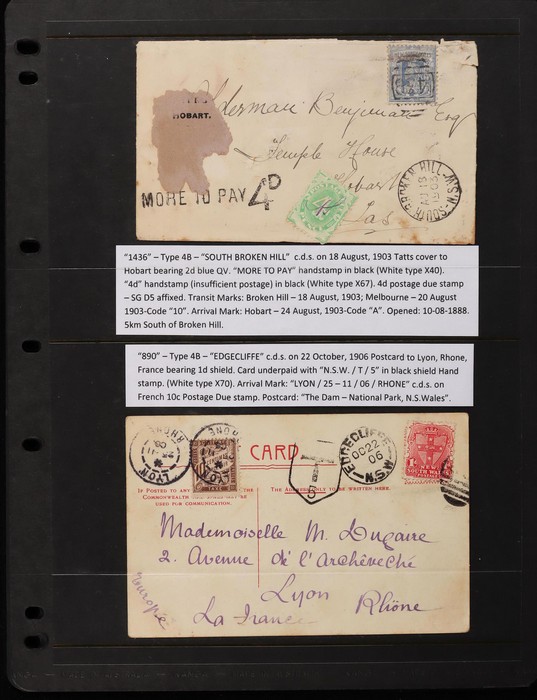 HOBART.
Alderman Benjiman Esq
Temple House
Hobart
Tas
MORE TO PAY 4D
SOUTH BROKEN HILL - N.S.W
AU 18
1903
"1436" – Type 4B – "SOUTH BROKEN HILL" c.d.s. on 18 August, 1903 Tatts cover to
Hobart bearing 2d blue QV. "MORE TO PAY" handstamp in black (White type X40).
"4d" handstamp (insufficient postage) in black (White type X67). 4d postage due stamp
– SG D5 affixed. Transit Marks: Broken Hill – 18 August, 1903; Melbourne – 20 August
1903-Code "10". Arrival Mark: Hobart – 24 August, 1903-Code "A". Opened: 10-08-1888.
5km South of Broken Hill.
"890" – Type 4B – "EDGECLIFFE" c.d.s. on 22 October, 1906 Postcard to Lyon, Rhone,
France bearing 1d shield. Card underpaid with "N.S.W. / T / 5" in black shield Hand
stamp. (White type X70). Arrival Mark: "LYON / 25 – 11 / 06 / RHONE" c.d.s. on
French 10c Postage Due stamp. Postcard: "The Dam – National Park, N.S.Wales".
LYON RHONE
CARD
EDGECLIFFE
OC 22
06
N.S.W
NEW
SOUTH WALES
IF POSTED TO ANY
COMMONWEALTH
USED FOR COMMUNICATION.
THE ADDRESS ONLY TO BE WRITTEN HERE.
Mademoiselle M. Dugaire
2. Avenue de l'Archêvéché
Lyon
Rhône
La France
Europe